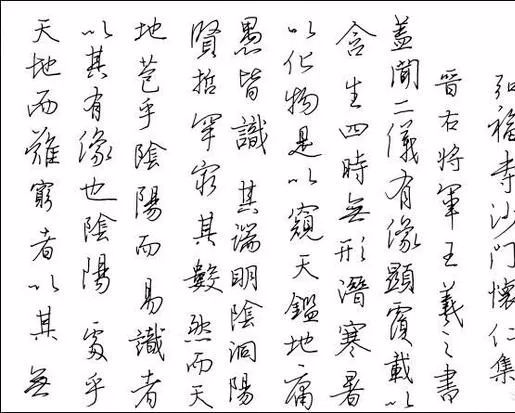 弘福寺沙門懷仁集
晉右將軍王羲之書
蓋聞二儀有像顯覆載以
含生四時無形潛寒暑
以化物是以窺天鑑地庸
愚皆識其端明陰洞陽
賢哲罕窮其數然而天
地苞乎陰陽而易識者
以其有像也陰陽處乎
天地而難窮者以其無